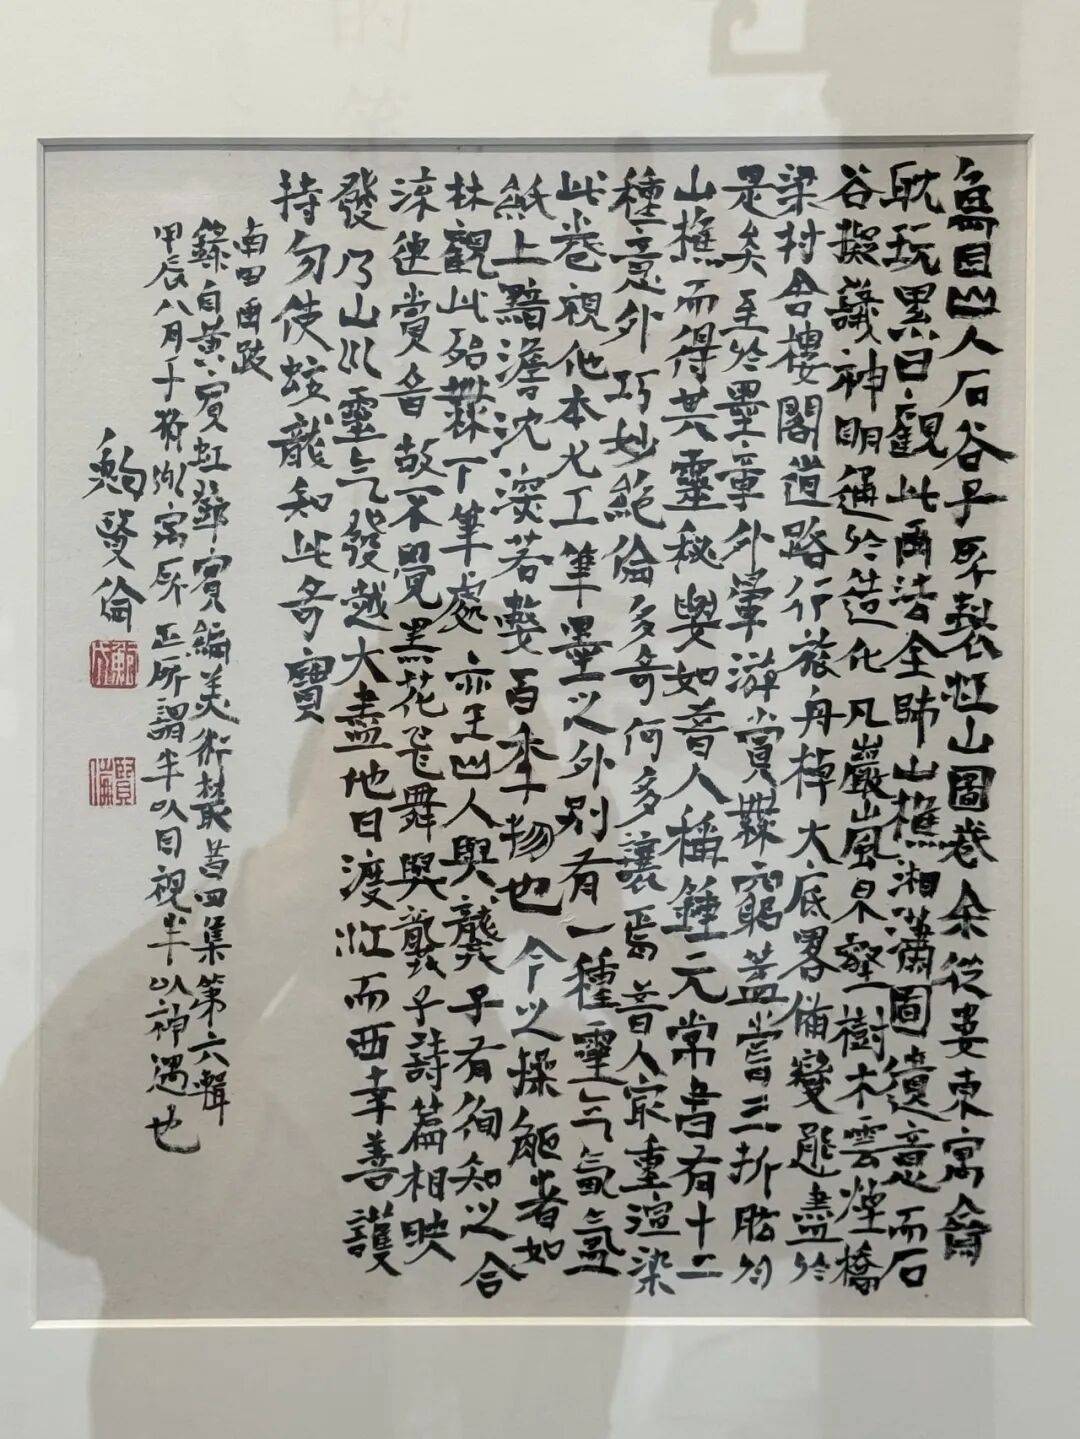 烏目山人石谷子所製江山圖卷余從婁東寓齋
耽玩累日觀此兩法全師山樵湘瀟圖遺意而石
谷擬議神明通於造化凡巖嵐泉壑樹木雲煙橋
梁村舍樓閣道路行旅舟棹大底畧備變態盡於
是矣至於墨章外暈游賞無窮蓋嘗三折肱於
山樵而得其靈秘與如昔人稱鍾元常書有十二
種意外巧妙絕倫多奇何多讓焉昔人最重渲染
此卷視他本尤工筆墨之外別有一種靈气氤氳
紙上黯澹沈溟若無百年物也今之操觚者如
林觀此殆無下筆處亦王山人與龔子有徇知之合
深連賞音故不覺黑花飛舞與龔子詩篇相映
發乃山川靈气發越大盡他日渡江而西幸善護
持勿使蛟龍知此奇寶
南田畫跋
錄自黃賓虹鄧實編美術叢書四集第六輯
甲辰八月于 寓所正所謂半以目視半以神遇也
賢倫
賢倫